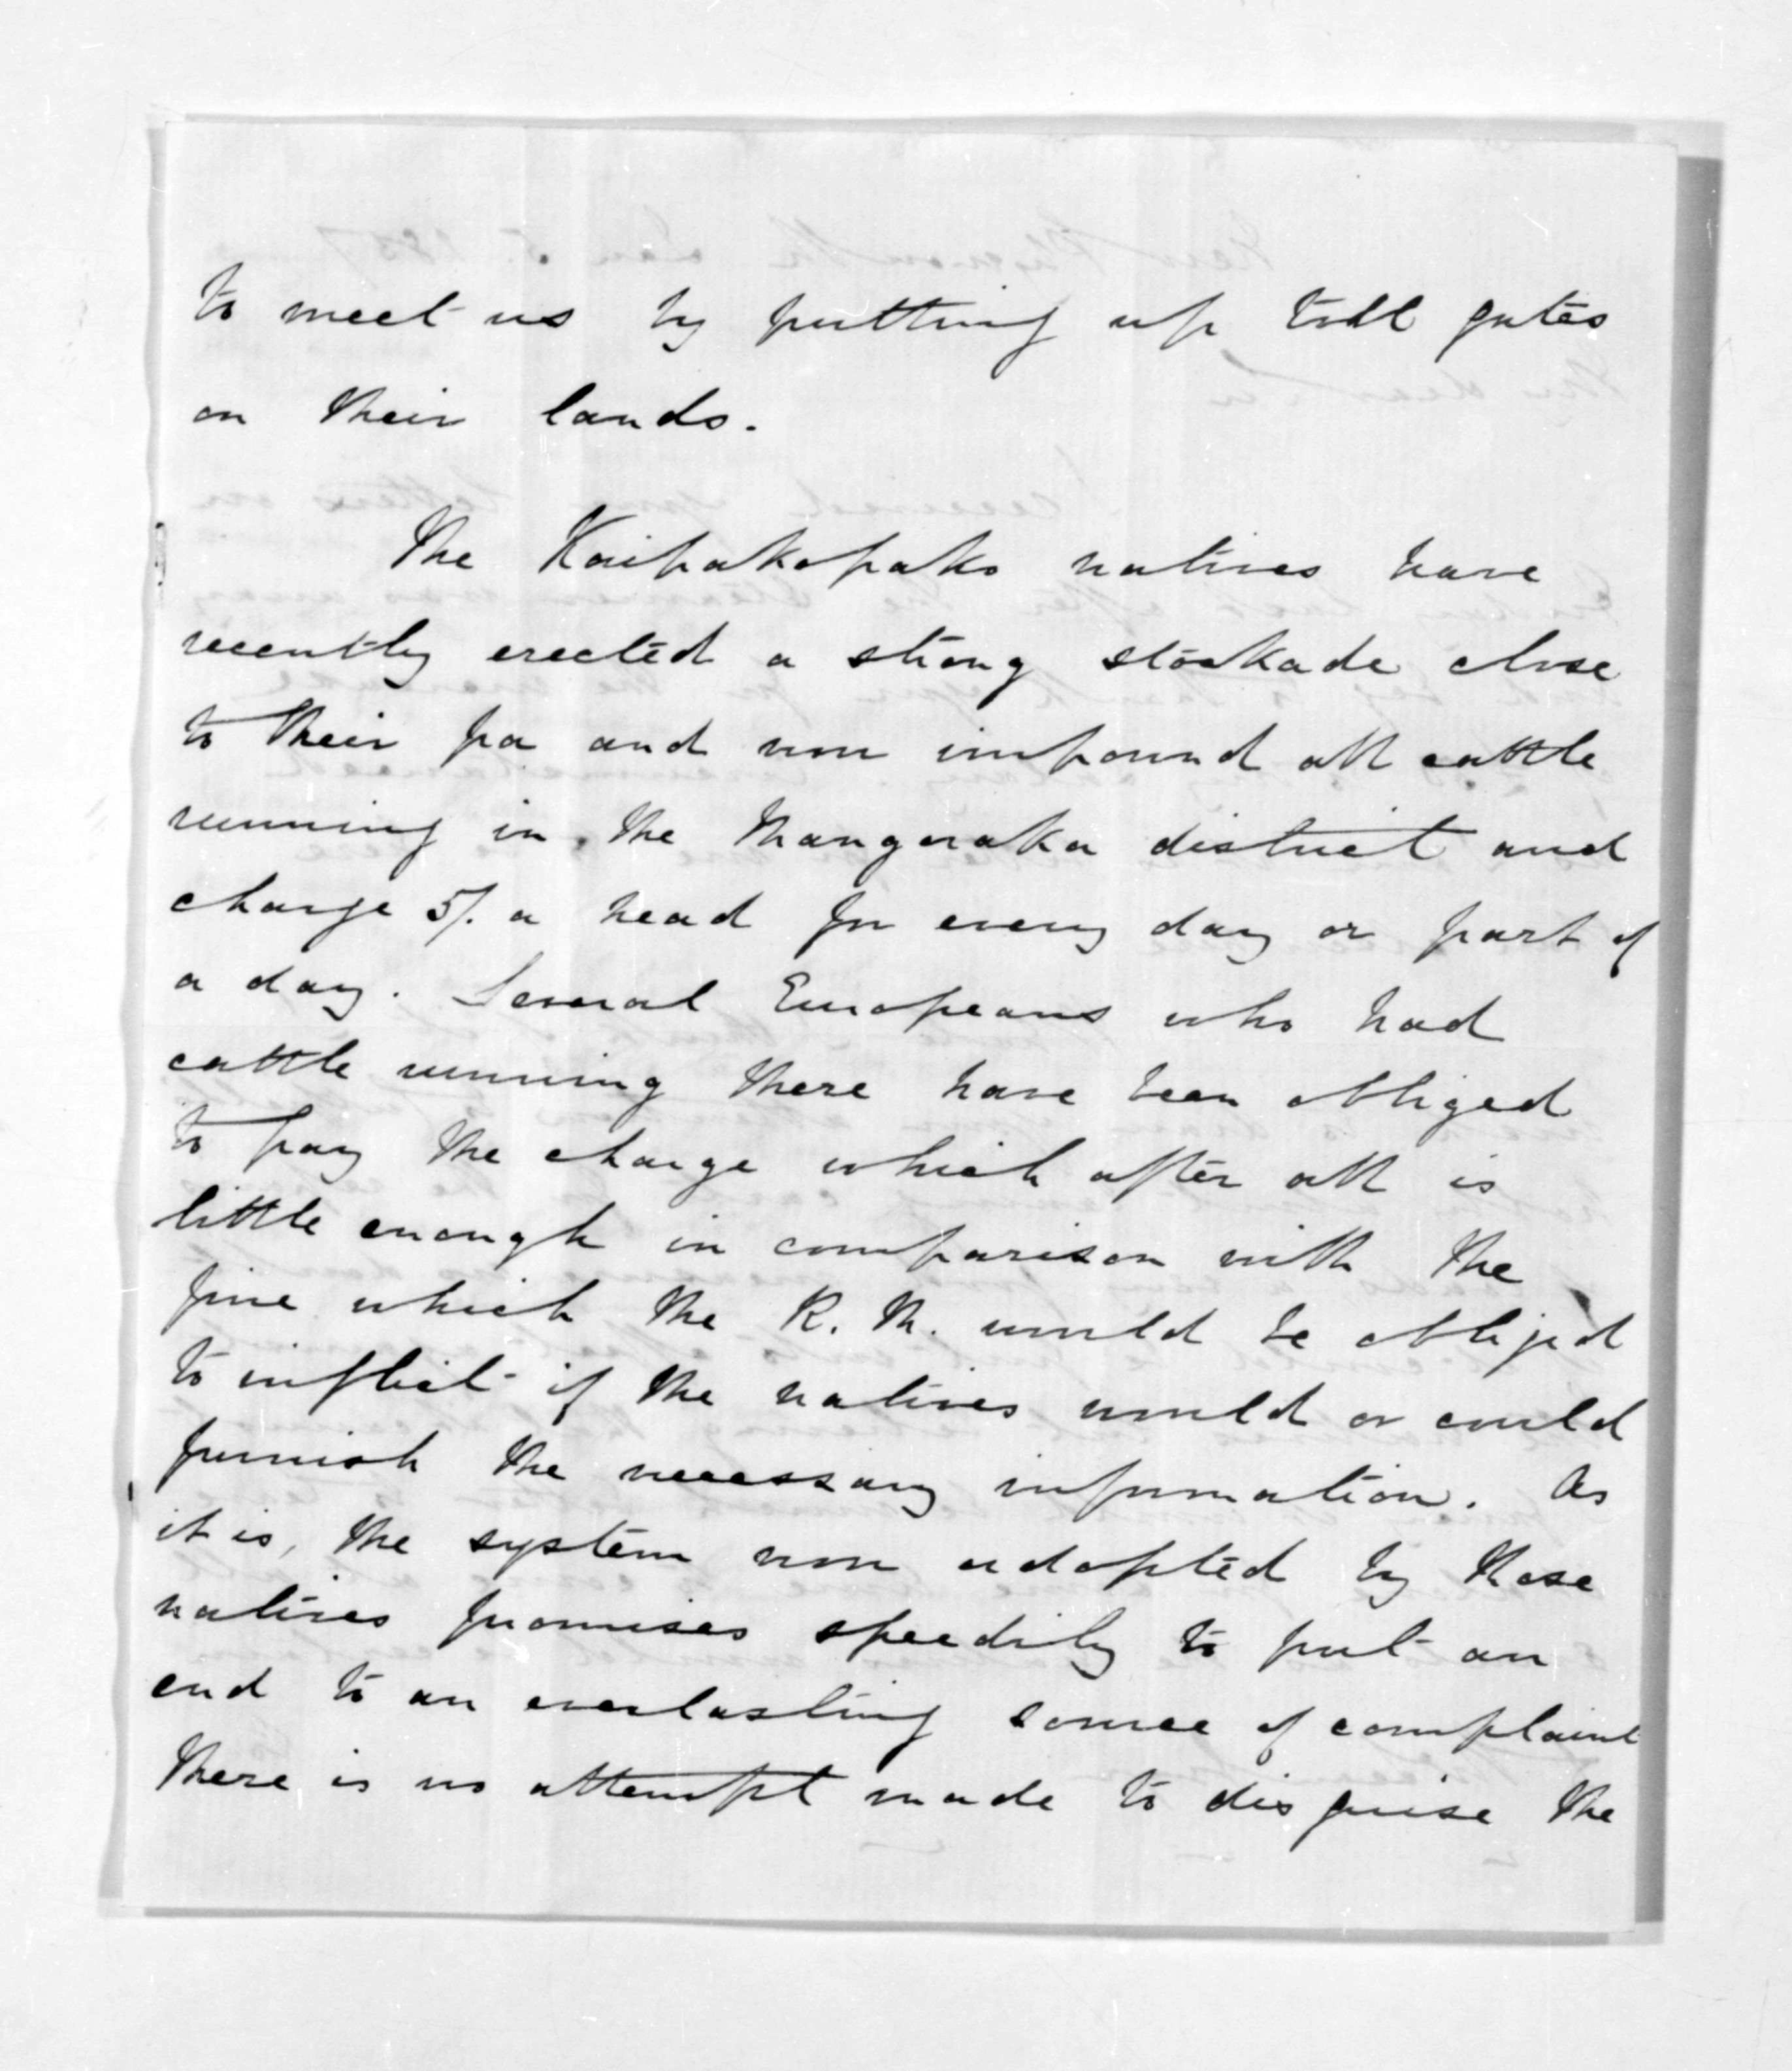 to meet us by putting up toll gates
on their lands.
The Kaipakopako natives have
recently erected a strong stockade close
to their pa and now impound all cattle
running in the Mangaraka district and
charge 5/. a head for every day or part of
a day. Several Europeans who had
cattle running there have been obliged
to pay the charge which after all is
little enough in comparison with the
fine which the R. M. would be obliged
to inflict if the natives would or could
furnish the necessary information. As
it is, the system now adopted by these
natives promises speedily to put an
end to an everlasting source of complaint
there is no attempt made to disguise the